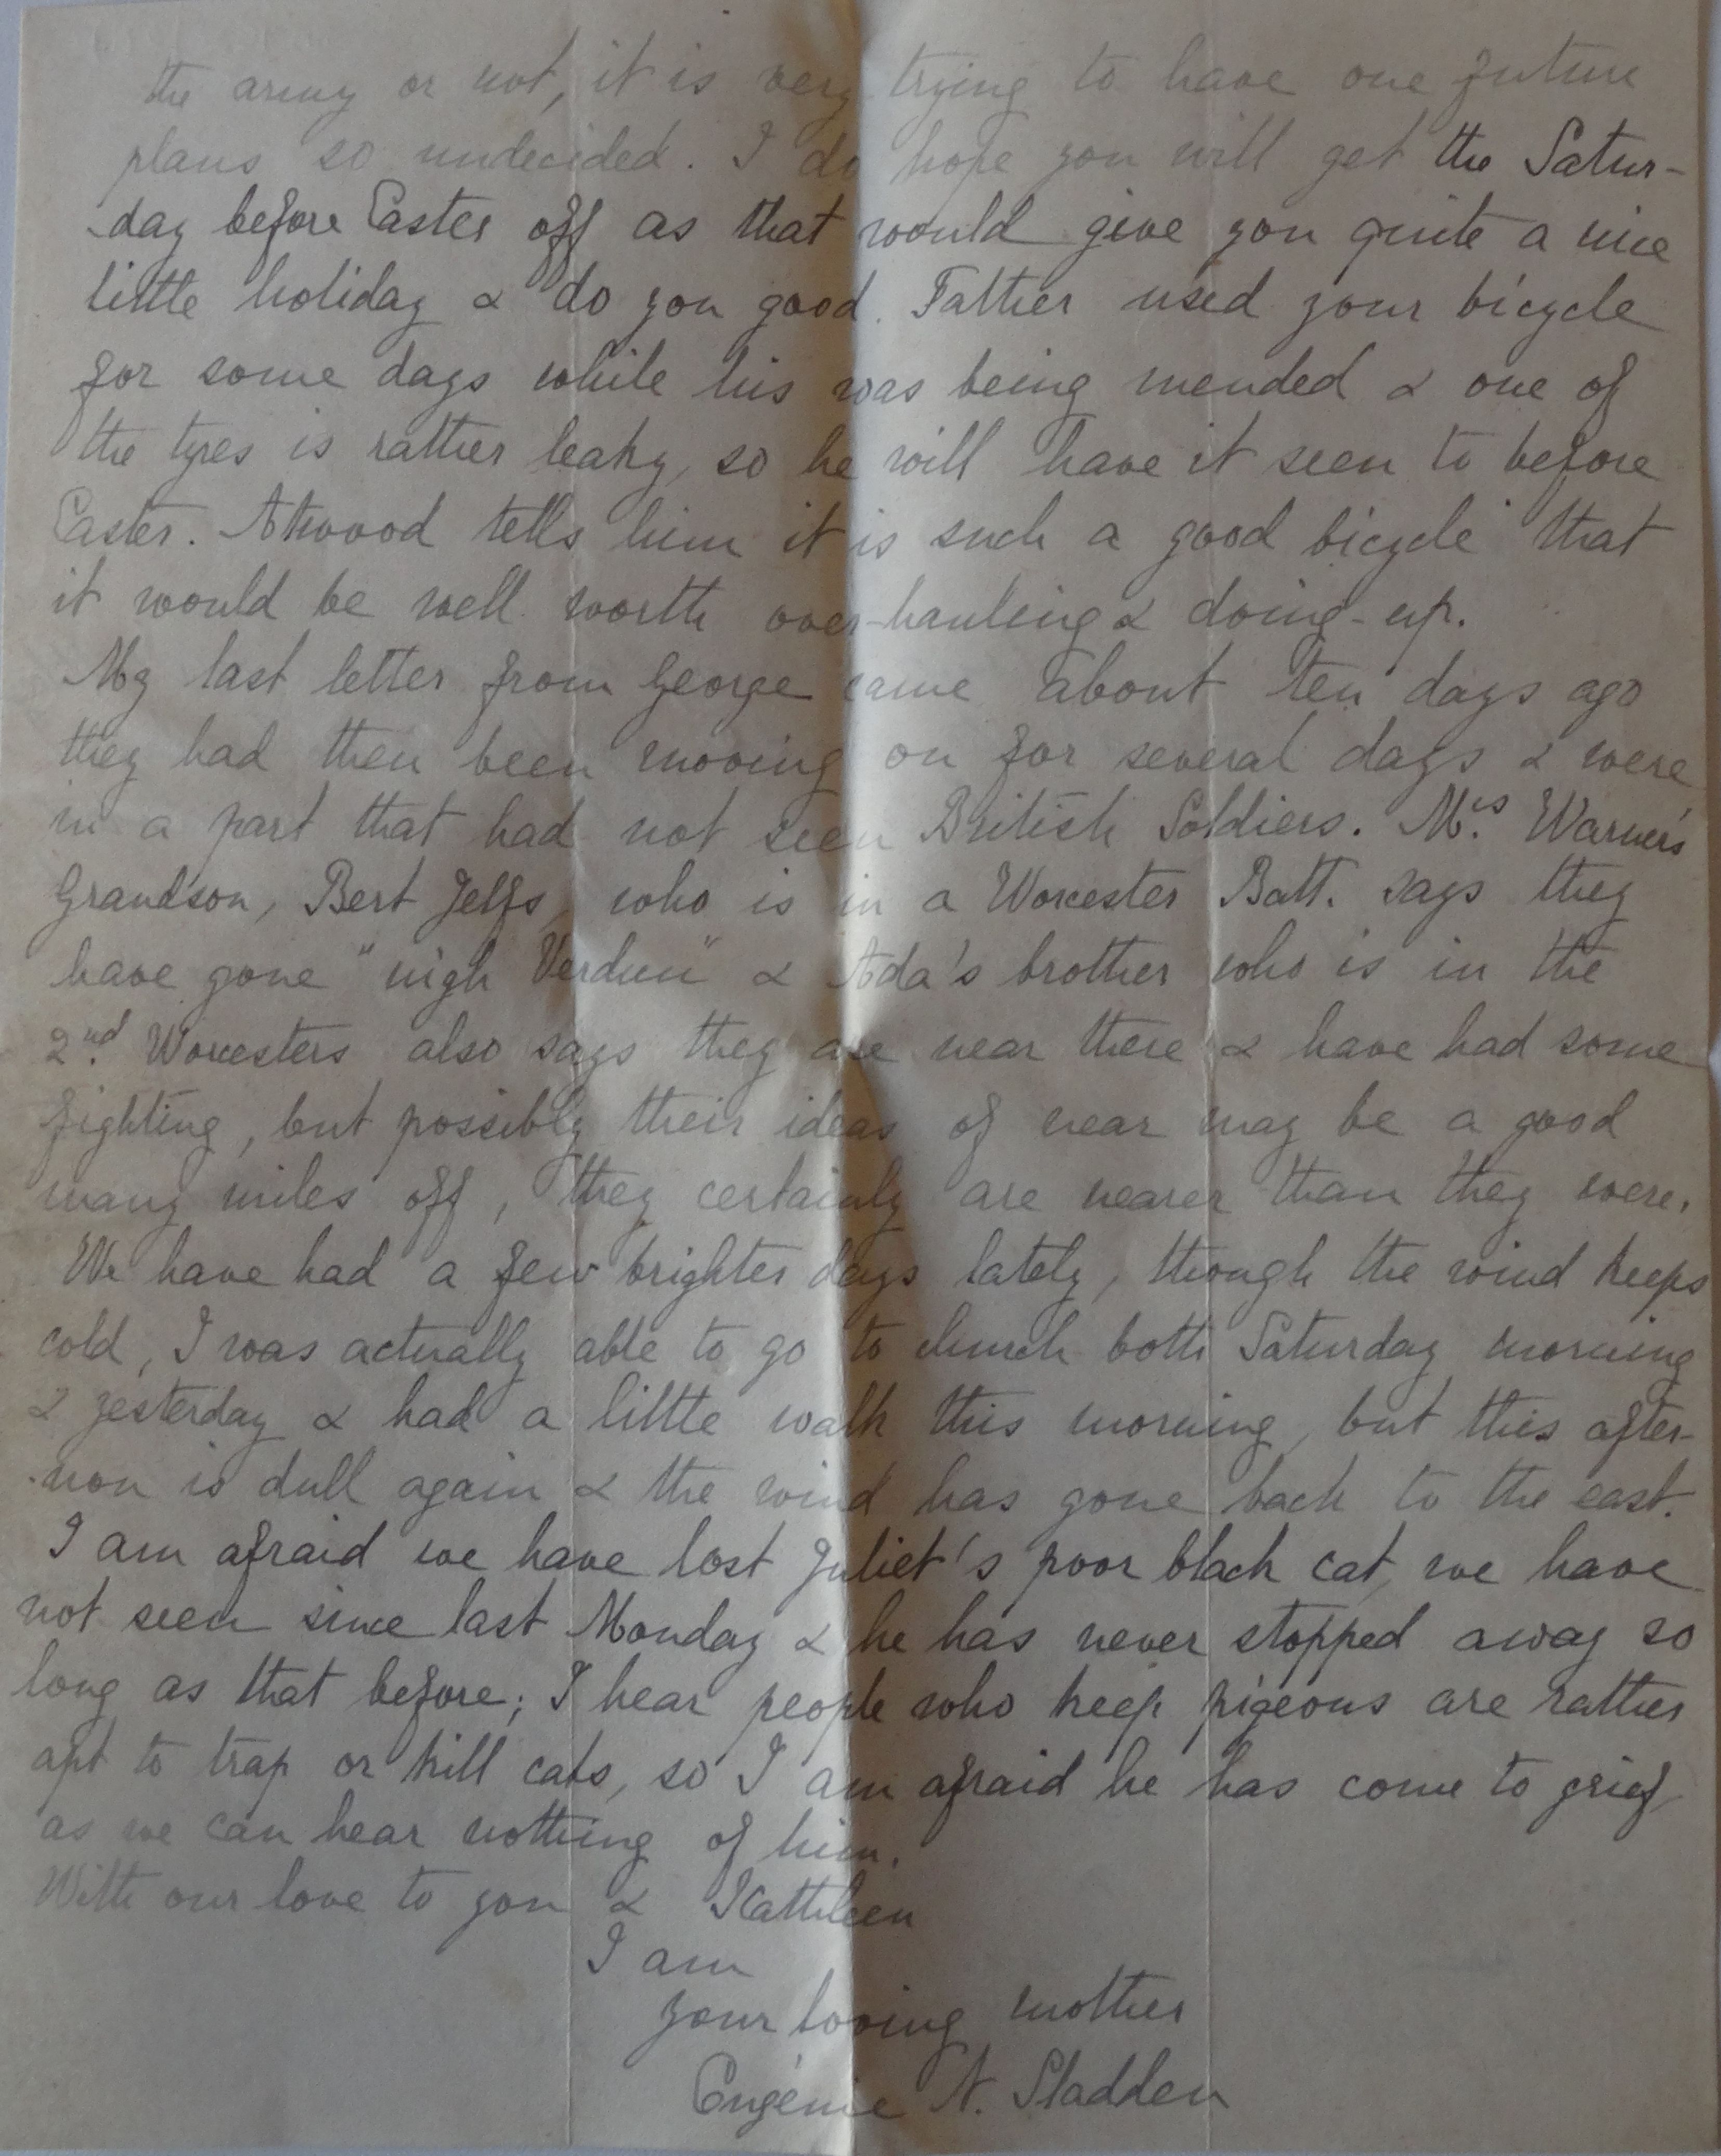 the army or not, it is very trying to have one future
plans so undecided. I do hope you will get the Satur-
-day before Easter off as that would give you quite a nice
little holiday & do you good. Father used your bicycle
for some days while his was being mended & one of
the tyres is rather leaky, so he will have it seen to before
Easter. Atwood tells him it is such a good bicycle that
it would be well worth over-hauling & doing-up.
My last letter from George came about ten days ago
they had then been moving on for several days & were
in a part that had not seen British Soldiers. Mrs. Warner's
Grandson, Bert Jelfs, who is in a Worcester Batt. says they
have gone "nigh Verdun" & Ada's brother who is in the
2nd. Worcesters also says they are near there & have had some
fighting, but possibly their ideas of near may be a good
many miles off, they certainly are nearer than they were.
We have had a few brighter days lately, though the wind keeps
cold, I was actually able to go to church both Saturday morning
& yesterday & had a little walk this morning, but this after-
-noon is dull again & the wind has gone back to the east.
I am afraid we have lost Juliet's poor black cat, we have
not seen since last Monday & he has never stopped away so
long as that before; I hear people who keep pigeons are rather
apt to trap or kill cats, so I am afraid he has come to grief,
as we can hear nothing of him.
With our love to you & Kathleen
I am
your loving mother
Eugénie N. Sladden